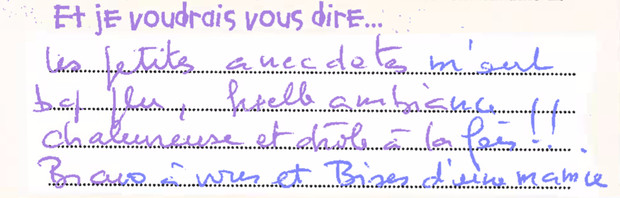 Et je voudrais vous dire...
les petites anecdotes m'ont
bcp plu, belle ambiance
chaleureuse et drôle à la fois !!
Bravo à vous et Bises d'une mamie